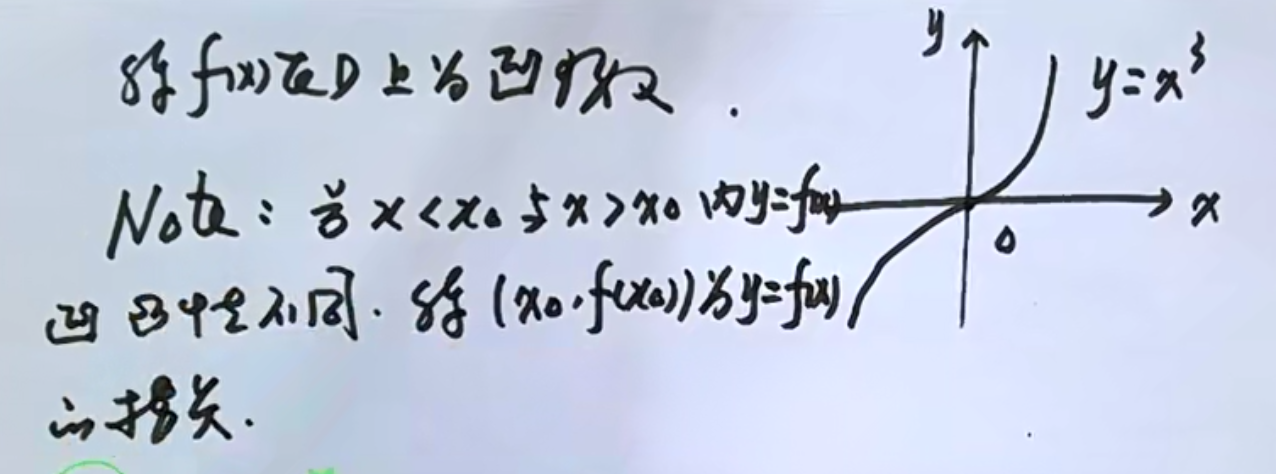 称f(x)在D上为凹函数.
Note: 若x<x₀与x>x₀内y=f(x)
凹凸性不同. 称(x₀,f(x₀))为y=f(x)
的拐点.
y
y=x³
x
0